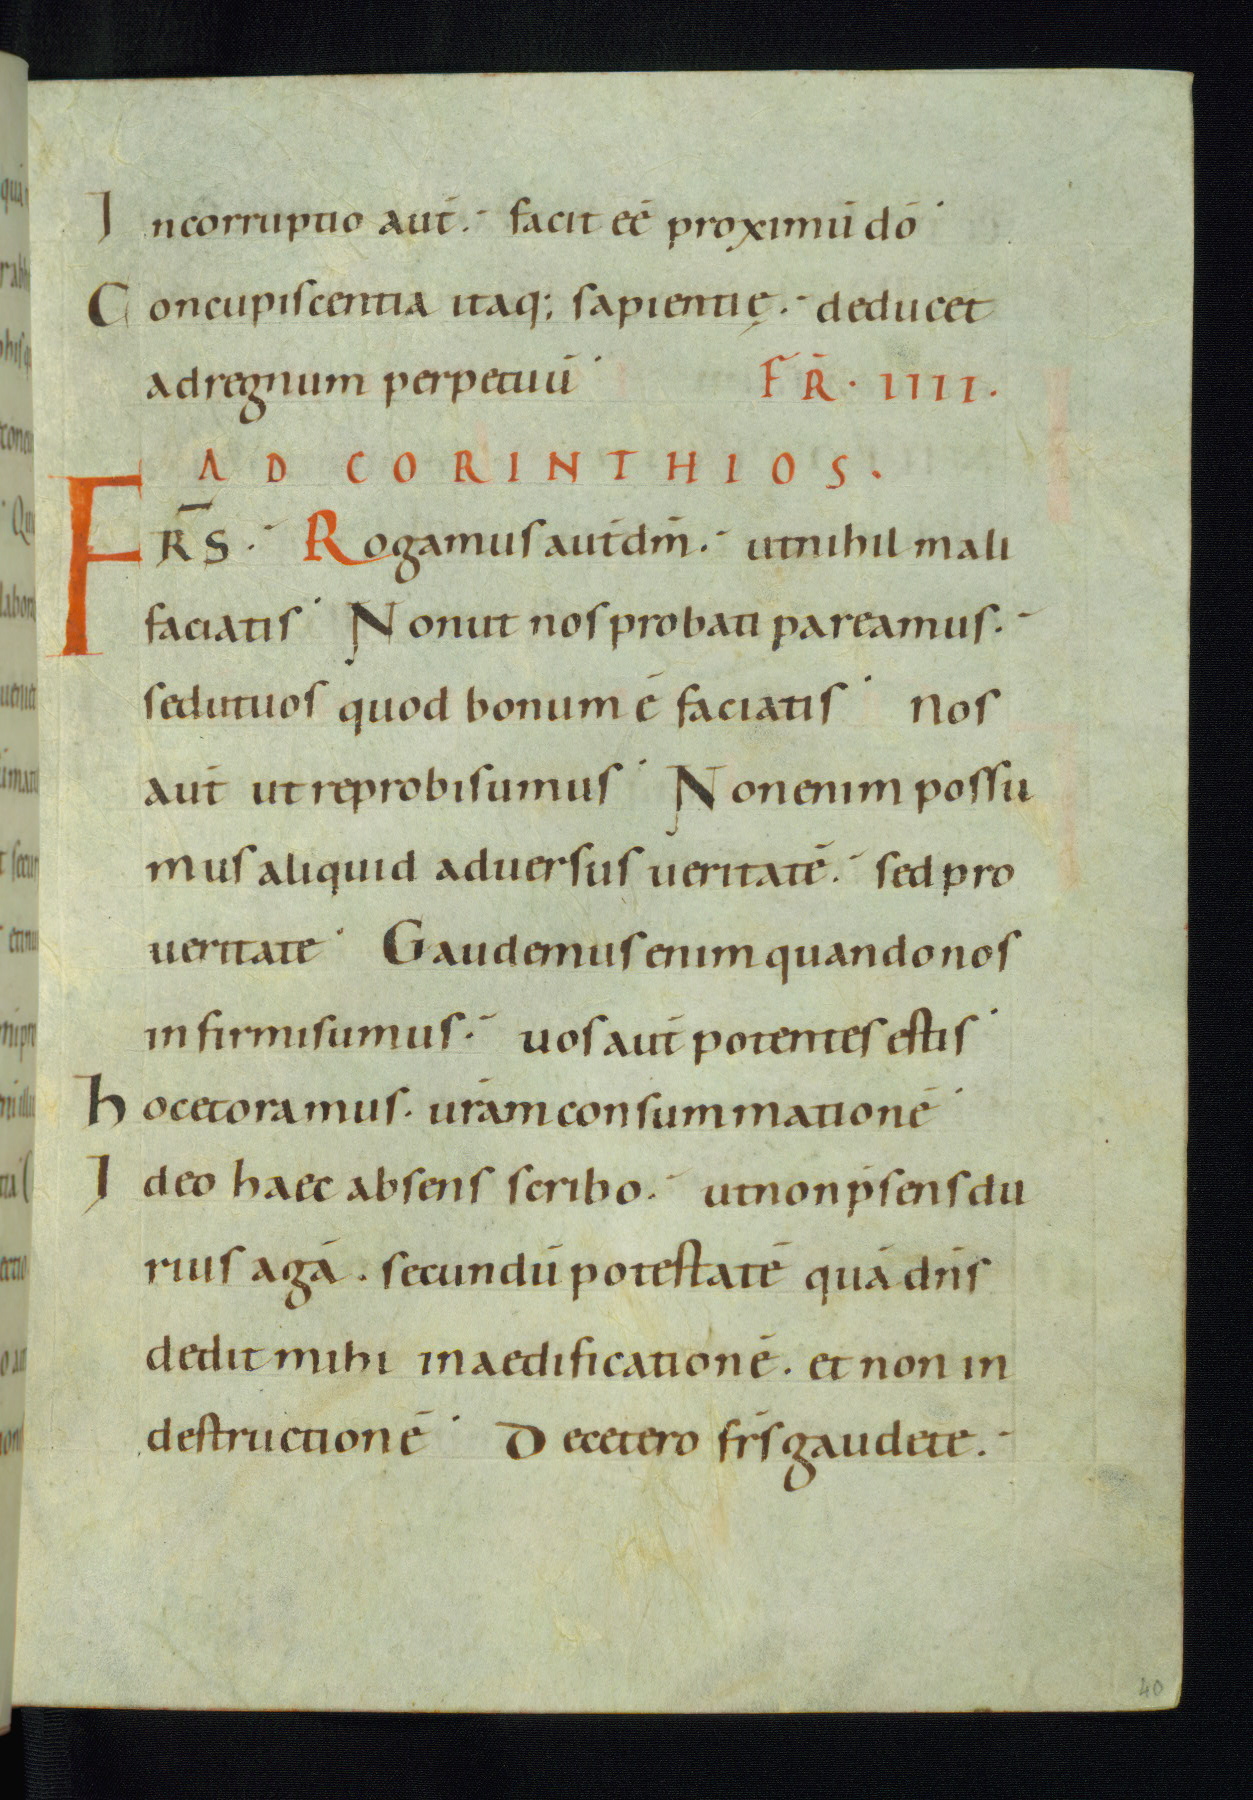 Incorruptio aut̄. facit eē proximū dō
Concupiscentia itaq; sapientię. deducet
ad regnum perpetuū FR̄. IIII.
AD CORINTHIOS.
FR̄S. Rogamus aut̄ dm̄. ut nihil mali
faciatis Non ut nos probati pareamus.
sed ut uos quod bonum ē faciatis Nos
aut̄ ut reprobi sumus Non enim possu
mus aliquid aduersus ueritatē. sed pro
ueritate Gaudemus enim quando nos
infirmi sumus. uos aut̄ potentes estis
hoc et oramus. ur̄am consummationē
Ideo haec absens scribo. ut non p̄sens du
rius agā. secundū potestatē quā dn̄s
dedit mihi in aedificationē. et non in
destructionē De cetero fr̄s gaudete.
40